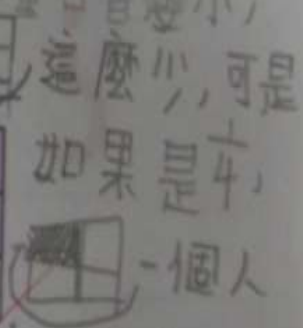 這麼少,可是
如果是1/4,
一個人